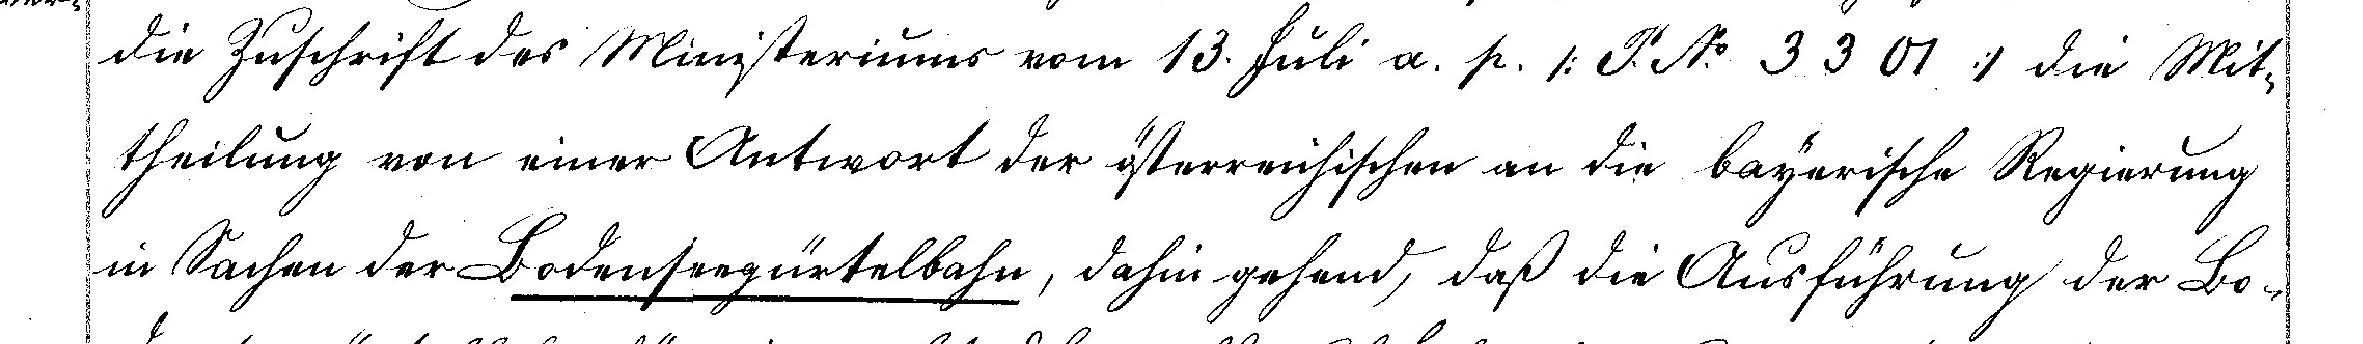 die Zuschrift des Ministeriums vom 13. Juli a. p. /: P. No 3301 :/ die Mit-
theilung von einer Antwort der österreichischen an die bayerische Regierung
in Sachen der Bodenseegürtelbahn, dahin gehend, daß die Ausführung der Bo-